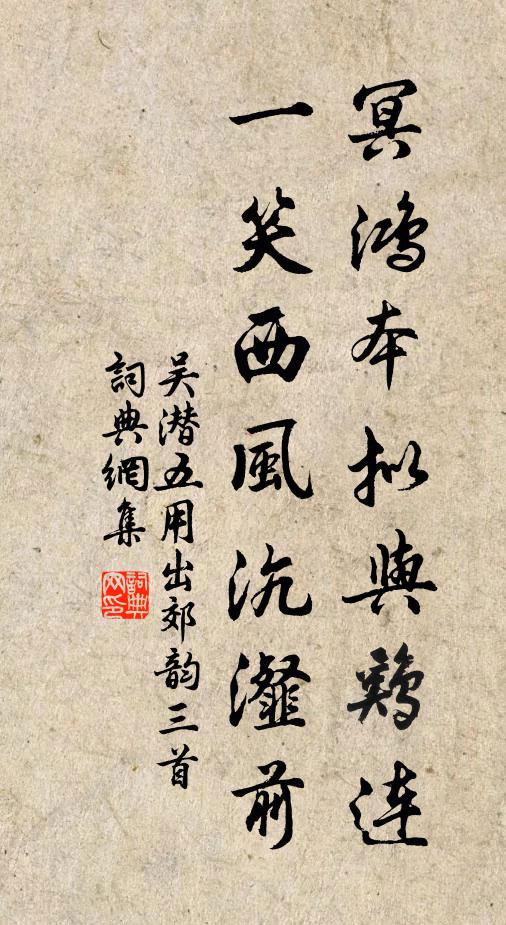 冥鴻本拟與鷄連
一笑西風沆瀣前
吴潜五用出郊韵三首
詞典網集
詞典
网印